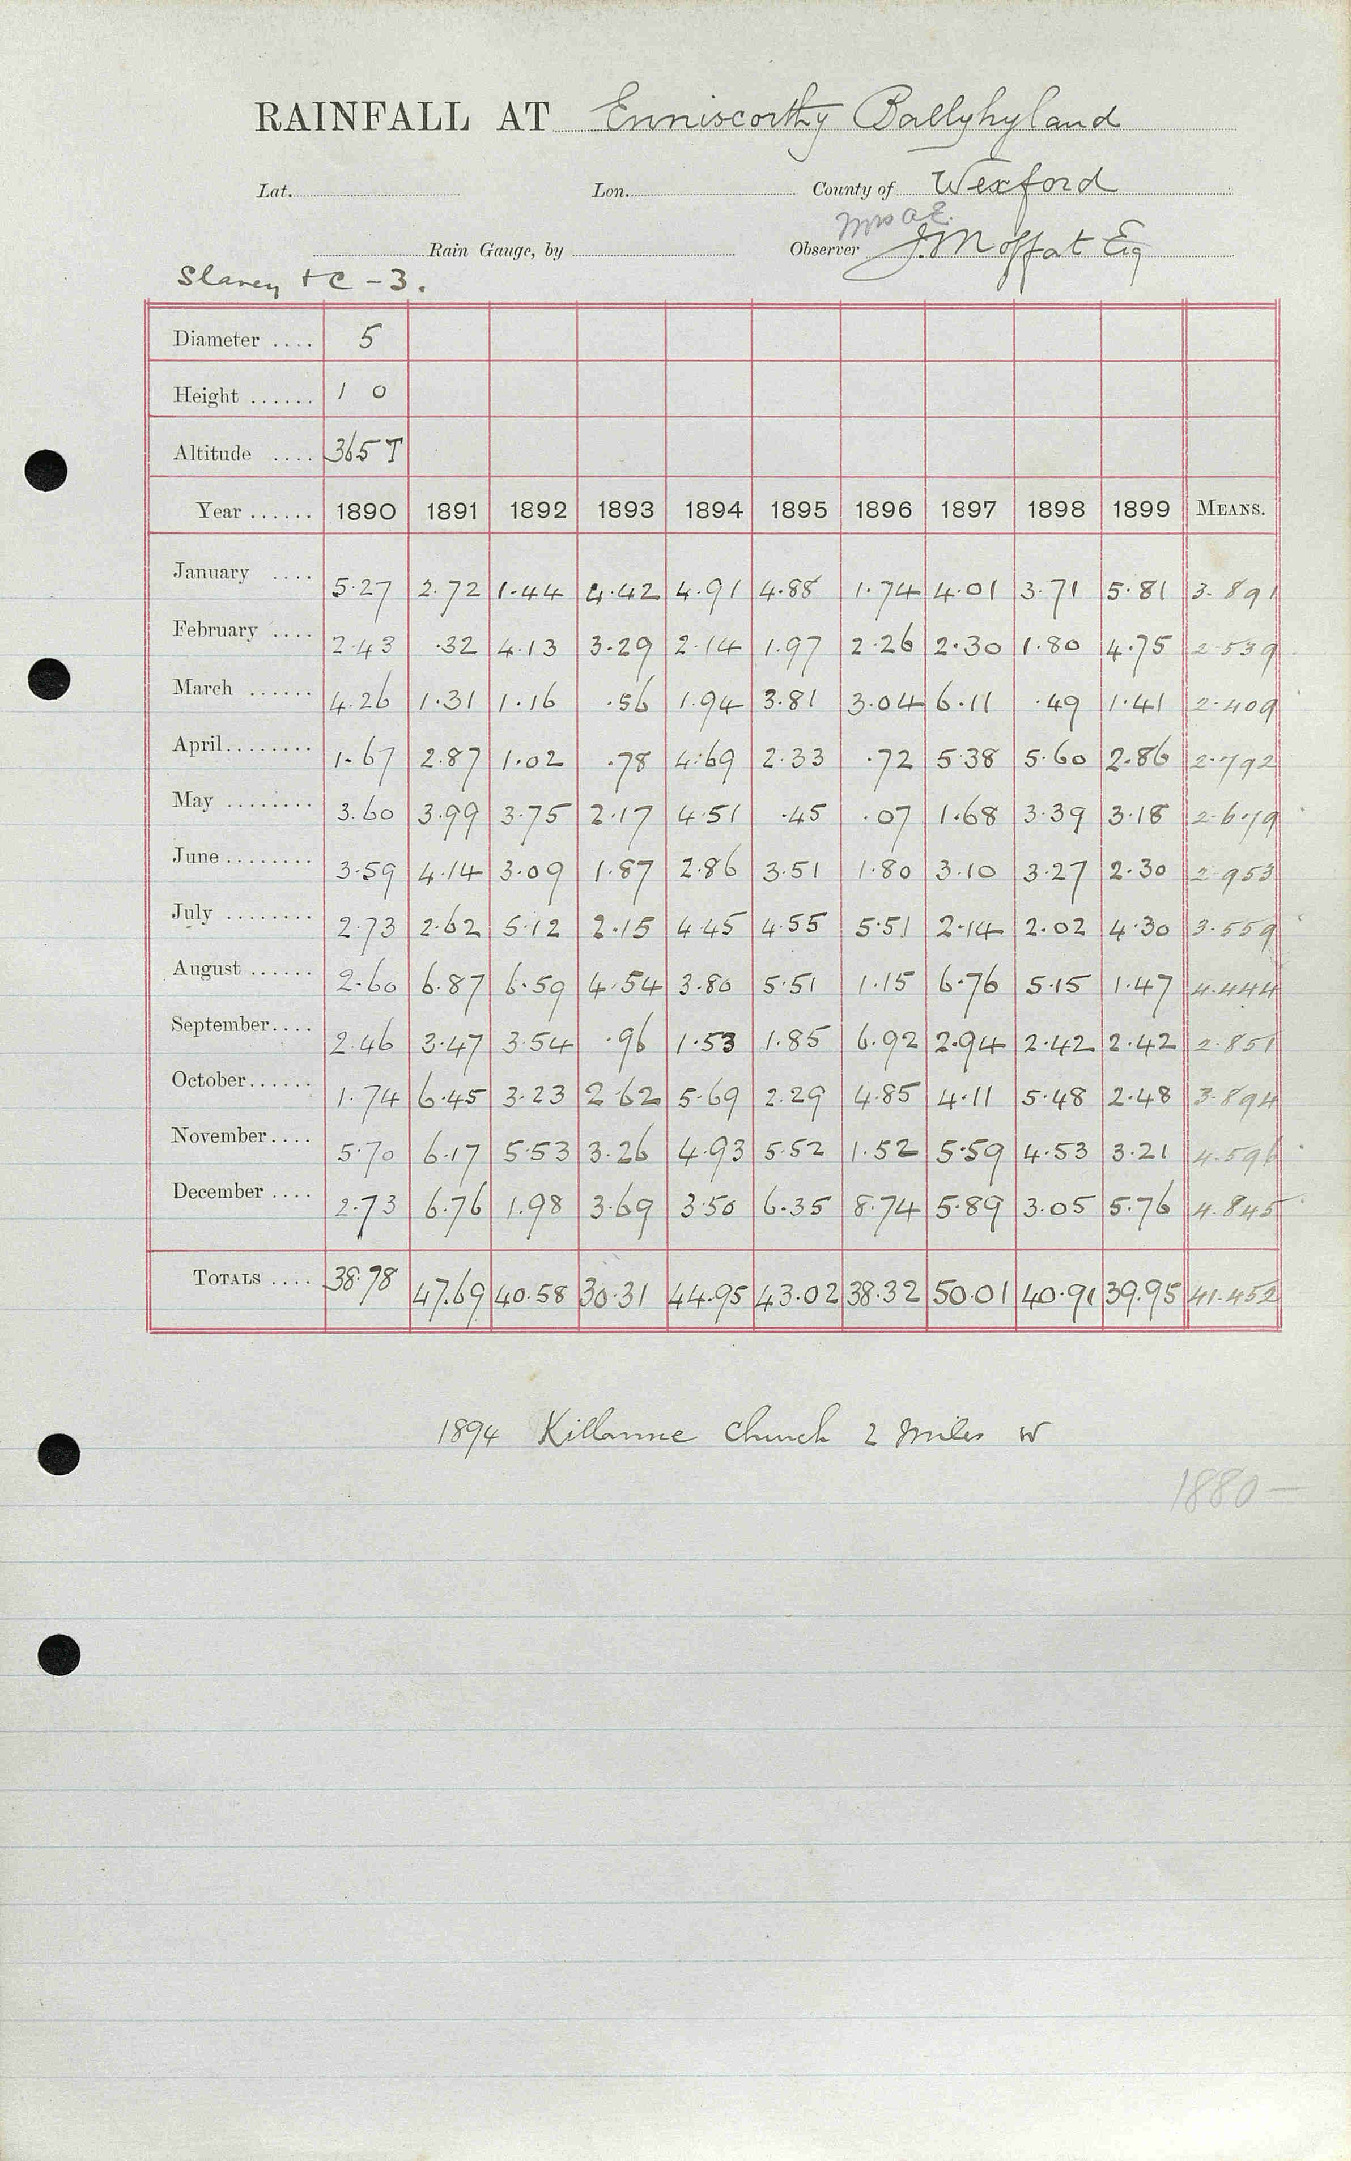 RAINFALL AT Enniscorthy Ballyhyland
Lat. Lon. County of Wexford
Mrs A E.
Rain Gauge, by Observer J. Moffat Esq
Slaney + C - 3.
Diameter .... 5
Height ...... 1 0
Altitude .... 365 T
Year ...... 1890 1891 1892 1893 1894 1895 1896 1897 1898 1899 MEANS.
January .... 5.27 2.72 1.44 4.42 4.91 4.88 1.74 4.01 3.71 5.81 3.891
February .... 2.43 .32 4.13 3.29 2.14 1.97 2.26 2.30 1.80 4.75 2.539
March ...... 4.26 1.31 1.16 .56 1.94 3.81 3.04 6.11 .49 1.41 2.409
April........ 1.67 2.87 1.02 .78 4.69 2.33 .72 5.38 5.60 2.86 2.792
May ........ 3.60 3.99 3.75 2.17 4.51 .45 .07 1.68 3.39 3.18 2.679
June ........ 3.59 4.14 3.09 1.87 2.86 3.51 1.80 3.10 3.27 2.30 2.953
July ........ 2.73 2.62 5.12 2.15 4.45 4.55 5.51 2.14 2.02 4.30 3.559
August ...... 2.60 6.87 6.59 4.54 3.80 5.51 1.15 6.76 5.15 1.47 4.444
September.... 2.46 3.47 3.54 .96 1.53 1.85 6.92 2.94 2.42 2.42 2.851
October...... 1.74 6.45 3.23 2.62 5.69 2.29 4.85 4.11 5.48 2.48 3.894
November.... 5.70 6.17 5.53 3.26 4.93 5.52 1.52 5.59 4.53 3.21 4.596
December .... 2.73 6.76 1.98 3.69 3.50 6.35 8.74 5.89 3.05 5.76 4.845
TOTALS .... 38.78 47.69 40.58 30.31 44.95 43.02 38.32 50.01 40.91 39.95 41.452
1894 Killanne Church 2 miles W
1880 —